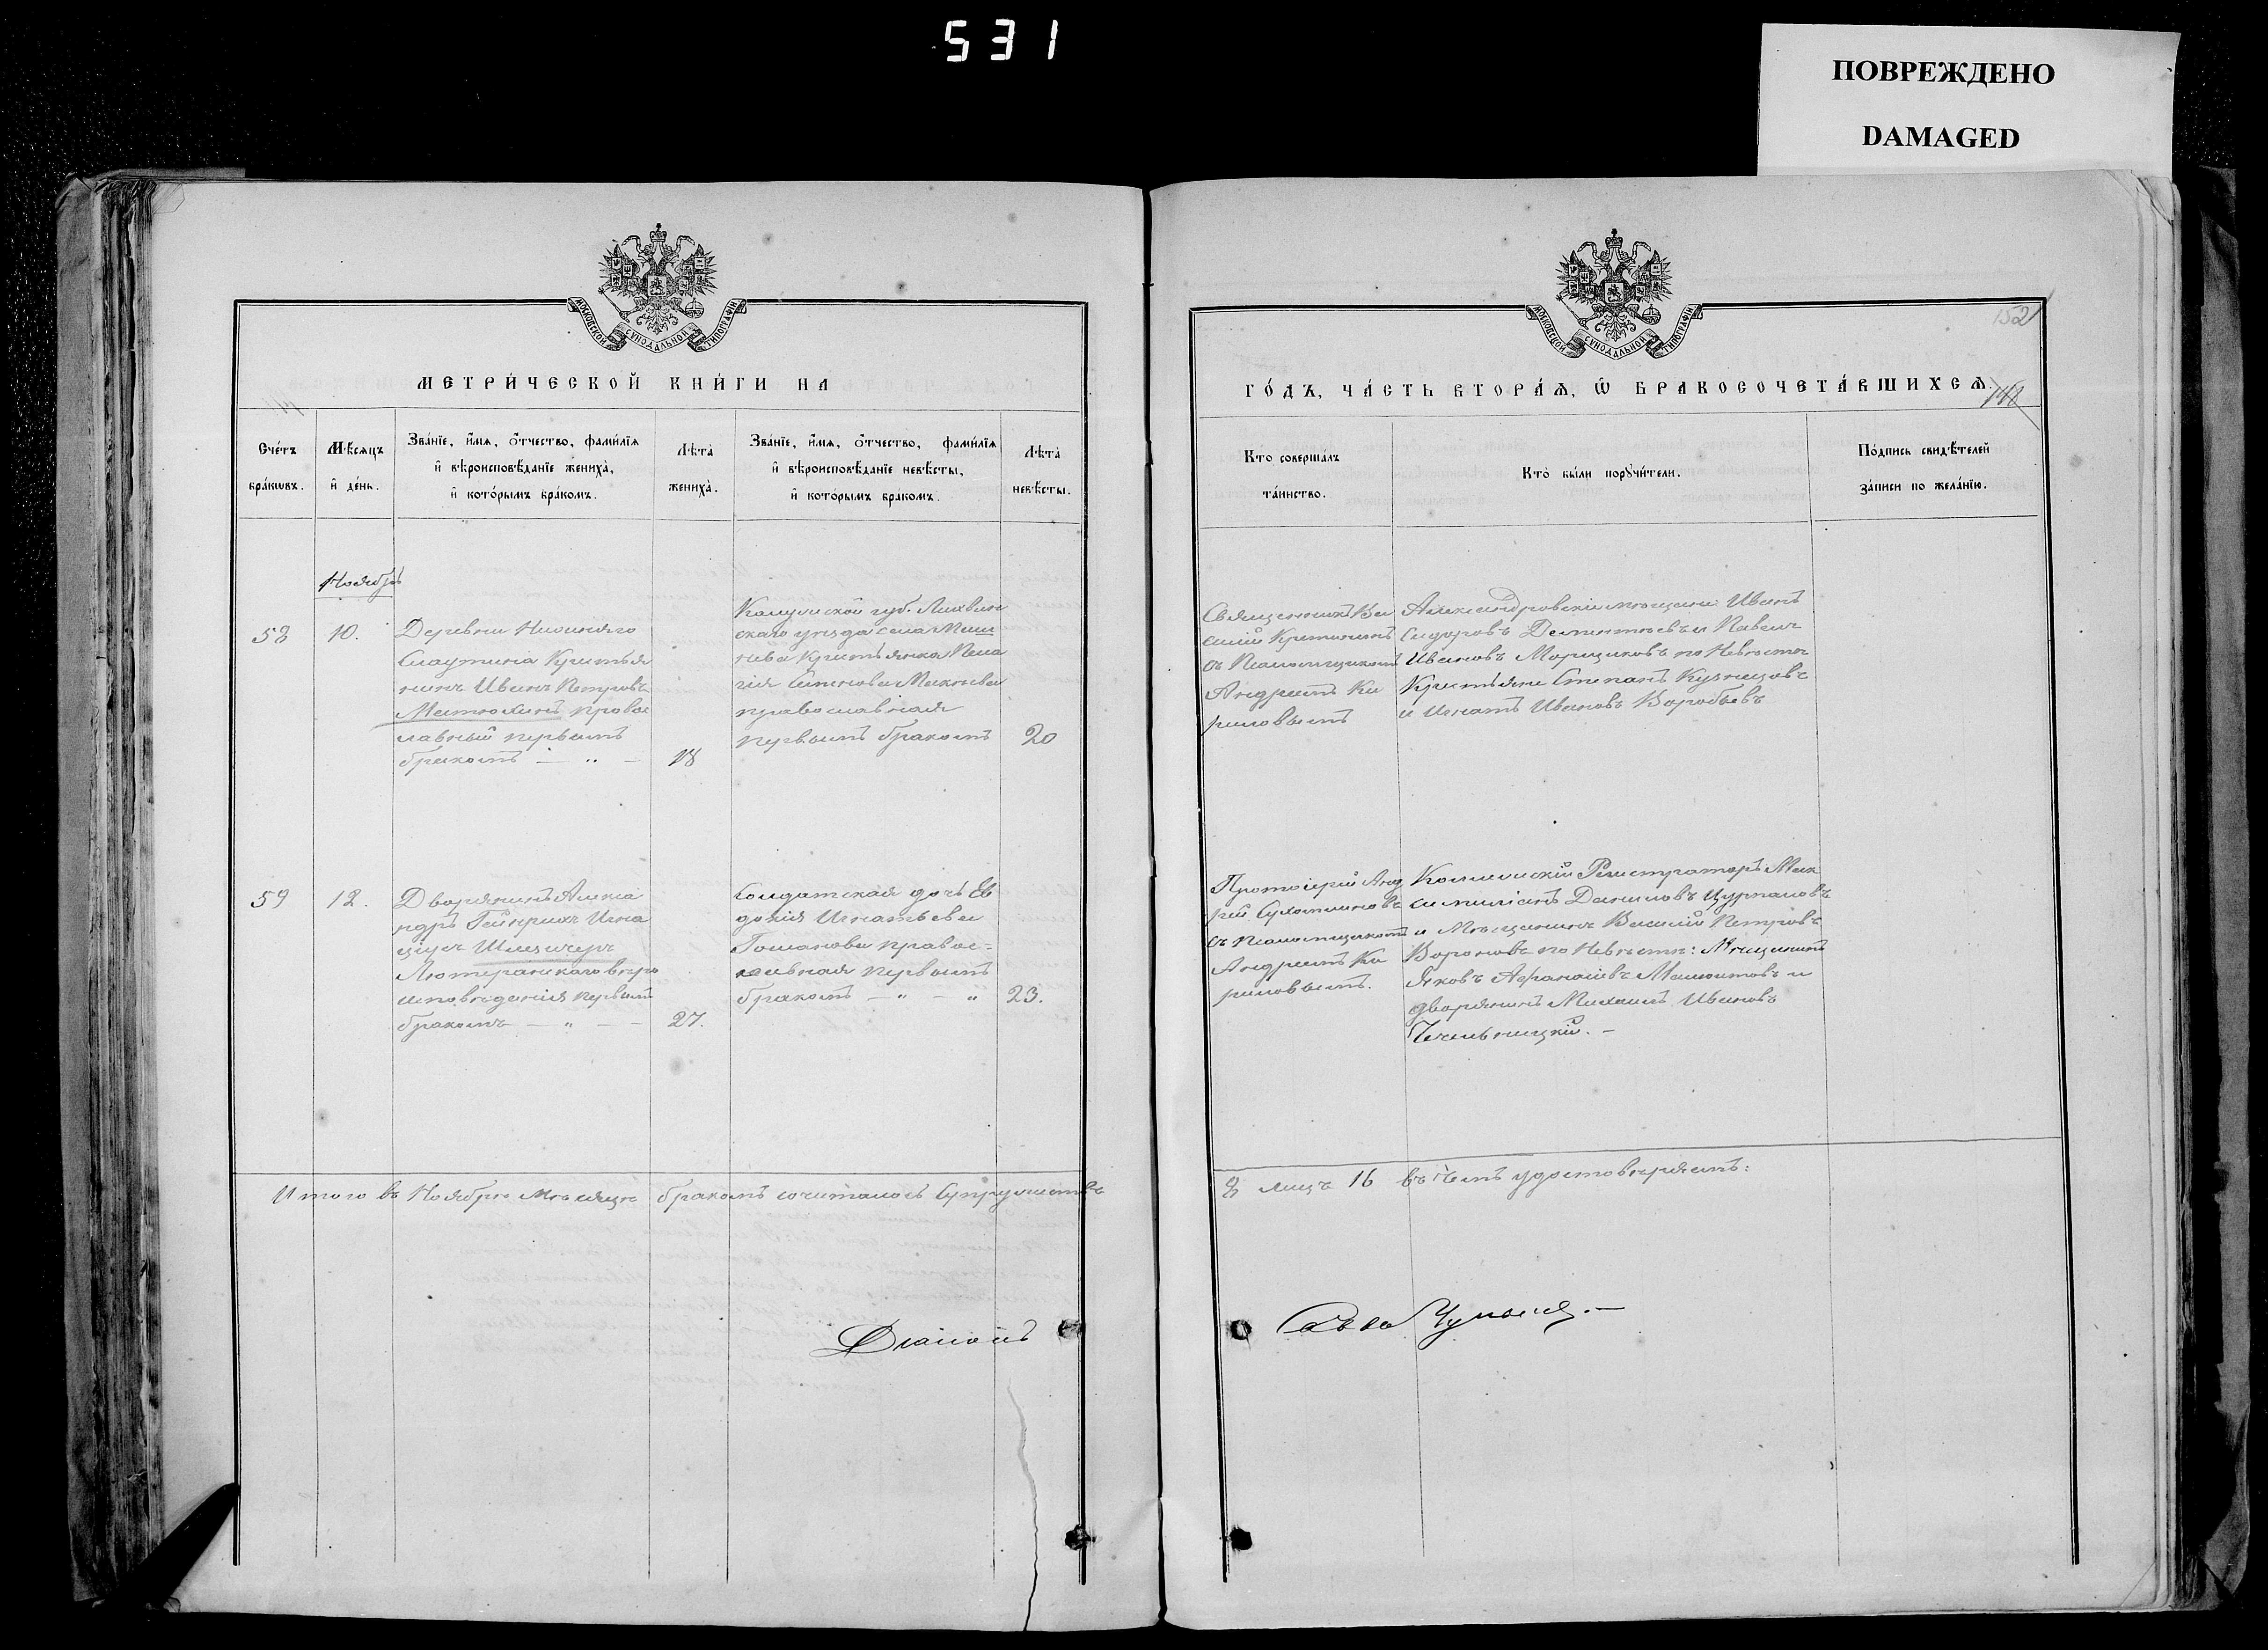 531
ПОВРЕЖДЕНО
DAMAGED
МОСКОВСКОЙ СУНОДАЛЬНОЙ ТИПОГРАФІИ
МЕТРИ́ЧЕСКОЙ КНИ́ГИ НА
Сче́тъ бра́кѡвъ.
Мѣ́сяцъ и҆ де́нь.
Зва́нїе, и҆́мѧ, ѻ҆́тчество, фами́лїѧ
и҆ вѣроисповѣ́данїе жениха̀,
и҆ кото́рымъ бра́комъ.
Лѣ́та̀ жениха̀.
Зва́нїе, и҆́мѧ, ѻ҆́тчество, фами́лїѧ
и҆ вѣроисповѣ́данїе невѣ́сты,
и҆ кото́рымъ бра́комъ.
Лѣ́та̀ невѣ́сты.
Ноябрь
58
10.
Деревни
Крестья
нинъ Иванъ Петровъ
правос
лавный первымъ
бракомъ — " —
18
Калужской губ. Лихвин
скаго уѣзда села
Крестьянка Пела
гія
православная
первымъ бракомъ
20
59
12.
Дворянинъ Алекса
ндръ Гейнрихъ Игна
Лютеранскаго вѣро
исповѣданія первымъ
бракомъ — " — —
27.
Солдатская дочь Ев
докія Игнатьева
правос=
лавная первымъ
бракомъ — " — "
23.
Итого въ Ноябрѣ мѣсяцѣ бракомъ сочиталось Супружествъ
Діаконъ
МОСКОВСКОЙ СУНОДАЛЬНОЙ ТИПОГРАФІИ
152
ГО́ДЪ, ЧА́СТЬ ВТОРА́Ѧ, Ѽ БРАКОСОЧЕТА́ВШИХСѦ.
148
Кто̀ соверша́лъ
та́инство.
Кто̀ бы́ли порꙋчи́тели.
По́дпись свидѣ́телей
за́писи по жела́нїю.
Священникъ Ва
силій
съ Псаломщикомъ
Андреемъ Ки
риловымъ
Александровскіи мѣщани: Иванъ
Сидоровъ Дементьевъ и Павелъ
Ивановъ Морщиковъ по Невѣстѣ
Крестьяни Степанъ Кузнецовъ
и Игнатъ Ивановъ Воробьевъ
Протоіерей Анд
рей Сухотиновъ
съ Псаломщикомъ
Андреемъ Ки
риловымъ.
Коллежскій Регистраторъ Мак
симиліанъ Даниловъ
и Мѣщанинъ Василій Петровъ
Вороновъ по Невѣстѣ: Мѣщанинъ
Яковъ Афанасіевъ Мамонтовъ и
дворянинъ Михаилъ Ивановъ
8 лицъ 16 въ чемъ удостовѣряемъ: